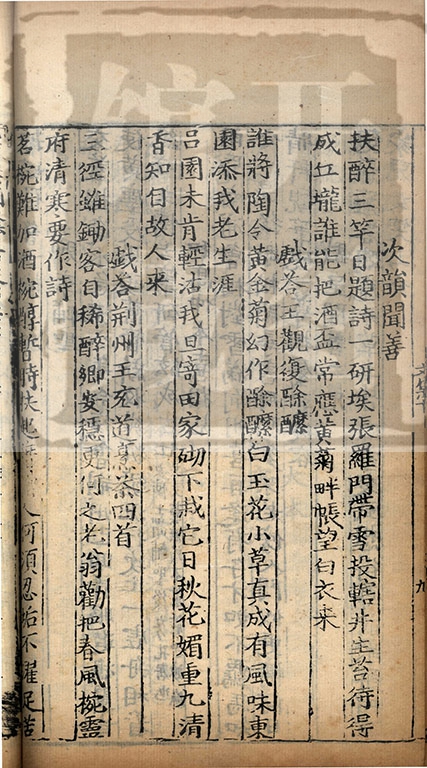 次韻聞善
扶醉三竿日題詩一研埃張羅門帶雪投轄井生苔待得
成丘壠誰能把酒盃常應黃菊畔悵望白衣来
戲荅王觀復酴醾
誰將陶令黃金菊幻作酴醾白玉花小草真成有風味東
園添我老生涯
呂園未肯輕沽我且寄田家砌下栽它日秋花媚重九清
香知自故人来
戲荅荆州王充道烹茶四首
三徑雖鋤客自稀醉鄉安穩更何之老翁勸把春風椀靈
府清寒要作詩
茗椀難加酒椀醇暫時扶起 人何須忍垢不濯足苦
九